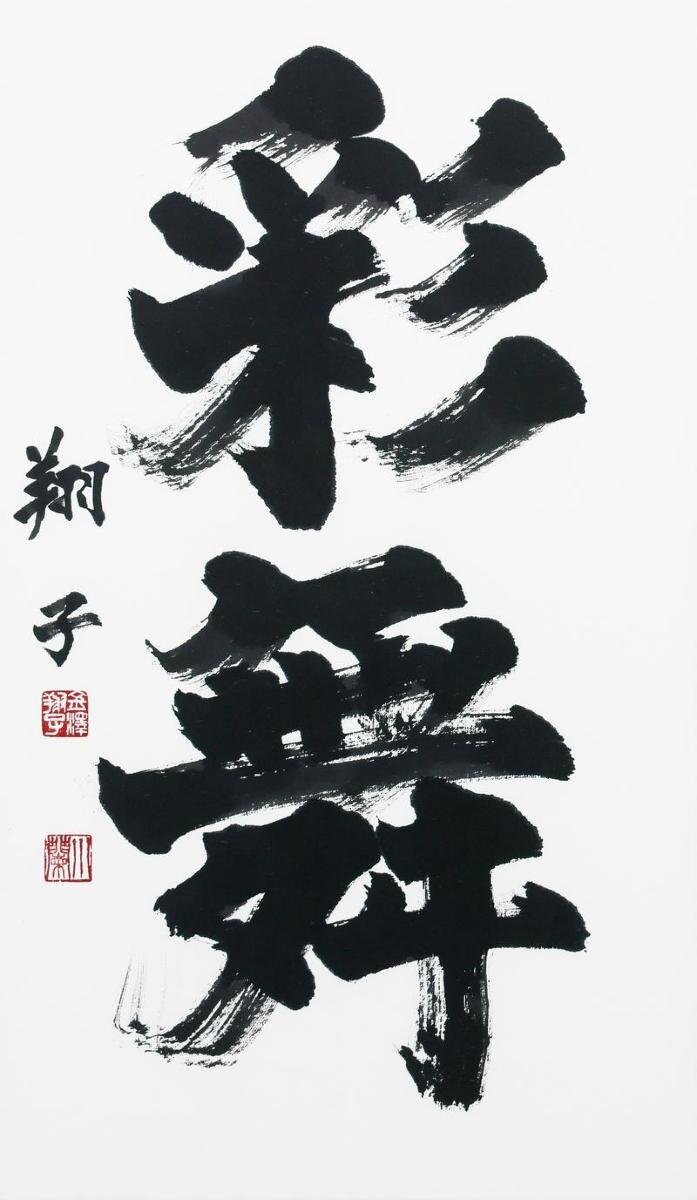 彩舞
翔子
金澤翔子
小蘭